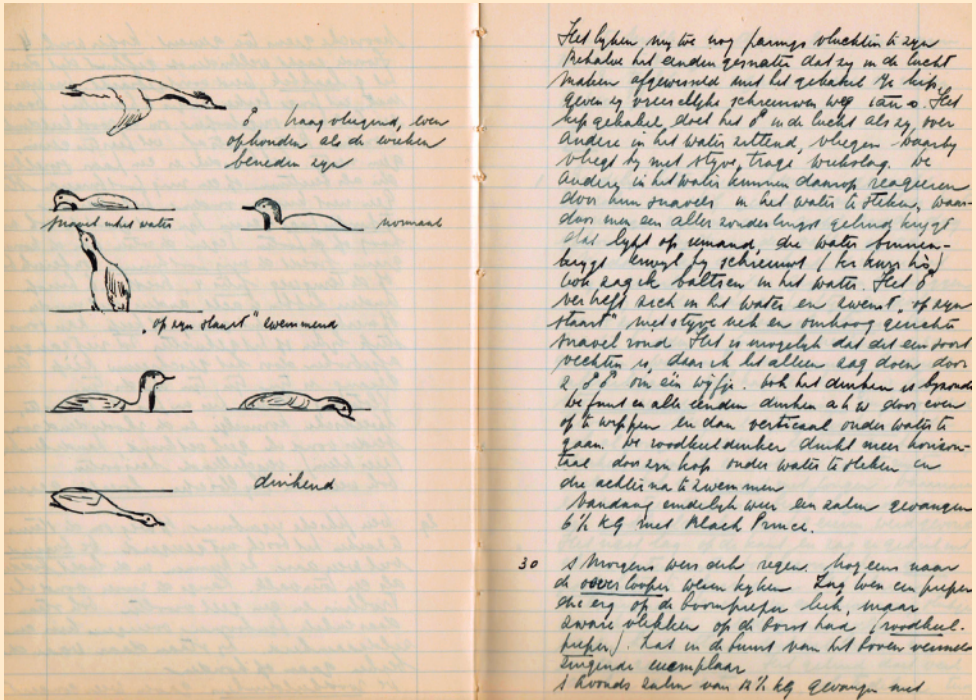 ♂ laagvliegend, even
ophouden als de wieken
beneden zijn
snavel in het water
normaal
"op zijn staart" zwemmend
duikend
Het lijken mij toe nog parings vluchten te zijn
Behalve het eenden gesnater dat zij in de lucht
maken afgewisseld met het gekakel v/e kip,
geven zij vreeselijke schreeuwen weg. Het
kip gekakel doet het ♂ in de lucht als zij over
andere in het water zittend, vliegen waarbij
vliegt hij met stijve, trage wiekslag. De
andere in het water kunnen daarop reageeren
door hun snavels in het water te steken, waar-
door men een aller zonderlingst geluid krijgt
dat lijkt op iemand, die water binnen-
krijgt terwijl hij schreeuwt
Ook zag ik baltsen in het water. Het ♂
verheft zich in het water en zwemt "op zijn
staart" met stijve nek en omhoog gerichte
snavel rond. Het is mogelijk dat dit een soort
vechten is, daar ik het alleen zag doen door
2 ♂♂ om één wijfje. Ook het duiken is bijzonder
De fuut en alle eenden duiken a.h.w. door even
op te wippen en dan verticaal onder water te
gaan. De roodkeelduiker duikt meer horizon-
taal door zijn kop onder water te steken en
die achterna te zwemmen
Vandaag eindelijk weer een zalm gevangen
6½ KG met Black Prince.
30 's Morgens weer dichte regen. Nog eens naar
de oeverlooper wezen kijken. Zag toen een pieper
die erg op de boompieper leek, maar
zware vlekken op de borst had (roodkeel-
pieper). Las in de buurt van het boven vermelde
zingende exemplaar
's Avonds zalm van 12½ kg gevangen met